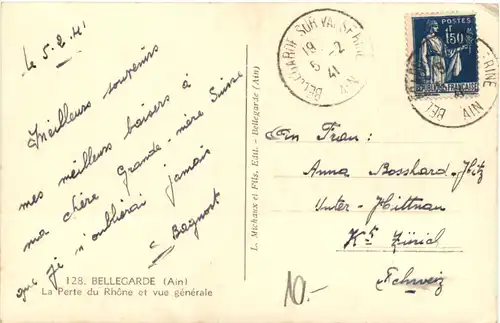 le 5.2.41
Meilleurs souvenirs
mes meilleurs baisers à
ma chère Grande-mère Suisse
que je n'oublierai jamais
S Bagnost
128. BELLEGARDE (Ain)
La Perte du Rhône et vue générale
L. Michaux et Fils, Edit. - Bellegarde (Ain)
BELLEGARDE SUR VALSERINE
19
5-2
41
AIN
POSTES
1F50
REPUBLIQUE FRANÇAISE
An Frau:
Anna Bosshard-Hitz
Unter-Hittnau
Kt Zürich
Schweiz
10.-